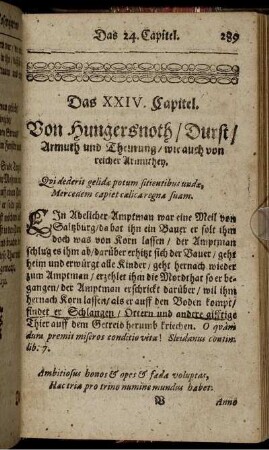 Das 24. Capitel. 289
Das XXIV. Capitel.
Von Hungersnoth / Durst /
Armuth und Theurung / wie auch von
reicher Armuthey.
Qvi dederit gelidæ potum sitientibus undæ,
Mercedem capiet cælica regna suam.
EIn Adelicher Amptman war eine Meil von
Saltzburg / da bat ihn ein Bauer er solt ihm
doch was von Korn lassen / der Amptman
schlug es ihm ab / darüber erhitzt sich der Bauer / geht
heim und erwürgt alle Kinder / geht hernach wieder
zum Amptman / erzehlet ihm die Mordthat so er be-
gangen / der Amptman erschrickt darüber / wil ihm
hernach Korn lassen / als er auff den Boden kompt /
findet er Schlangen / Ottern und andere gifftige
Thier auff dem Getreid herumb kriechen. O qvàm
dura premit miseros conditio vitæ! Sleidanus contin.
lib. 7.
Ambitiosus honos & opes & fœda voluptas,
Hæc tria pro trino numine mundus habet.
Anno